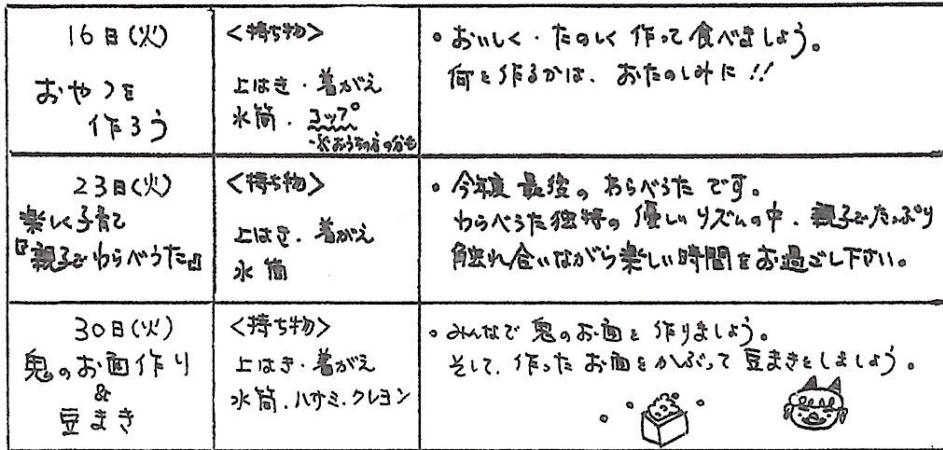 16日(火)
おやつを
作ろう
<持ち物>
上はき・着がえ
水筒・コップ
※おうちの方の分も
・おいしく・たのしく作って食べましょう。
何を作るかは、おたのしみに!!
23日(火)
楽しく子育て
『親子でわらべうた』
<持ち物>
上はき・着がえ
水筒
・今年度最後のわらべうたです。
わらべうた独特の優しいリズムの中、親子でたっぷり
触れ合いながら楽しい時間をお過ごし下さい。
30日(火)
鬼のお面作り
&
豆まき
<持ち物>
上はき・着がえ
水筒・ハサミ・クレヨン
・みんなで鬼のお面を作りましょう。
そして、作ったお面をかぶって豆まきをしましょう。